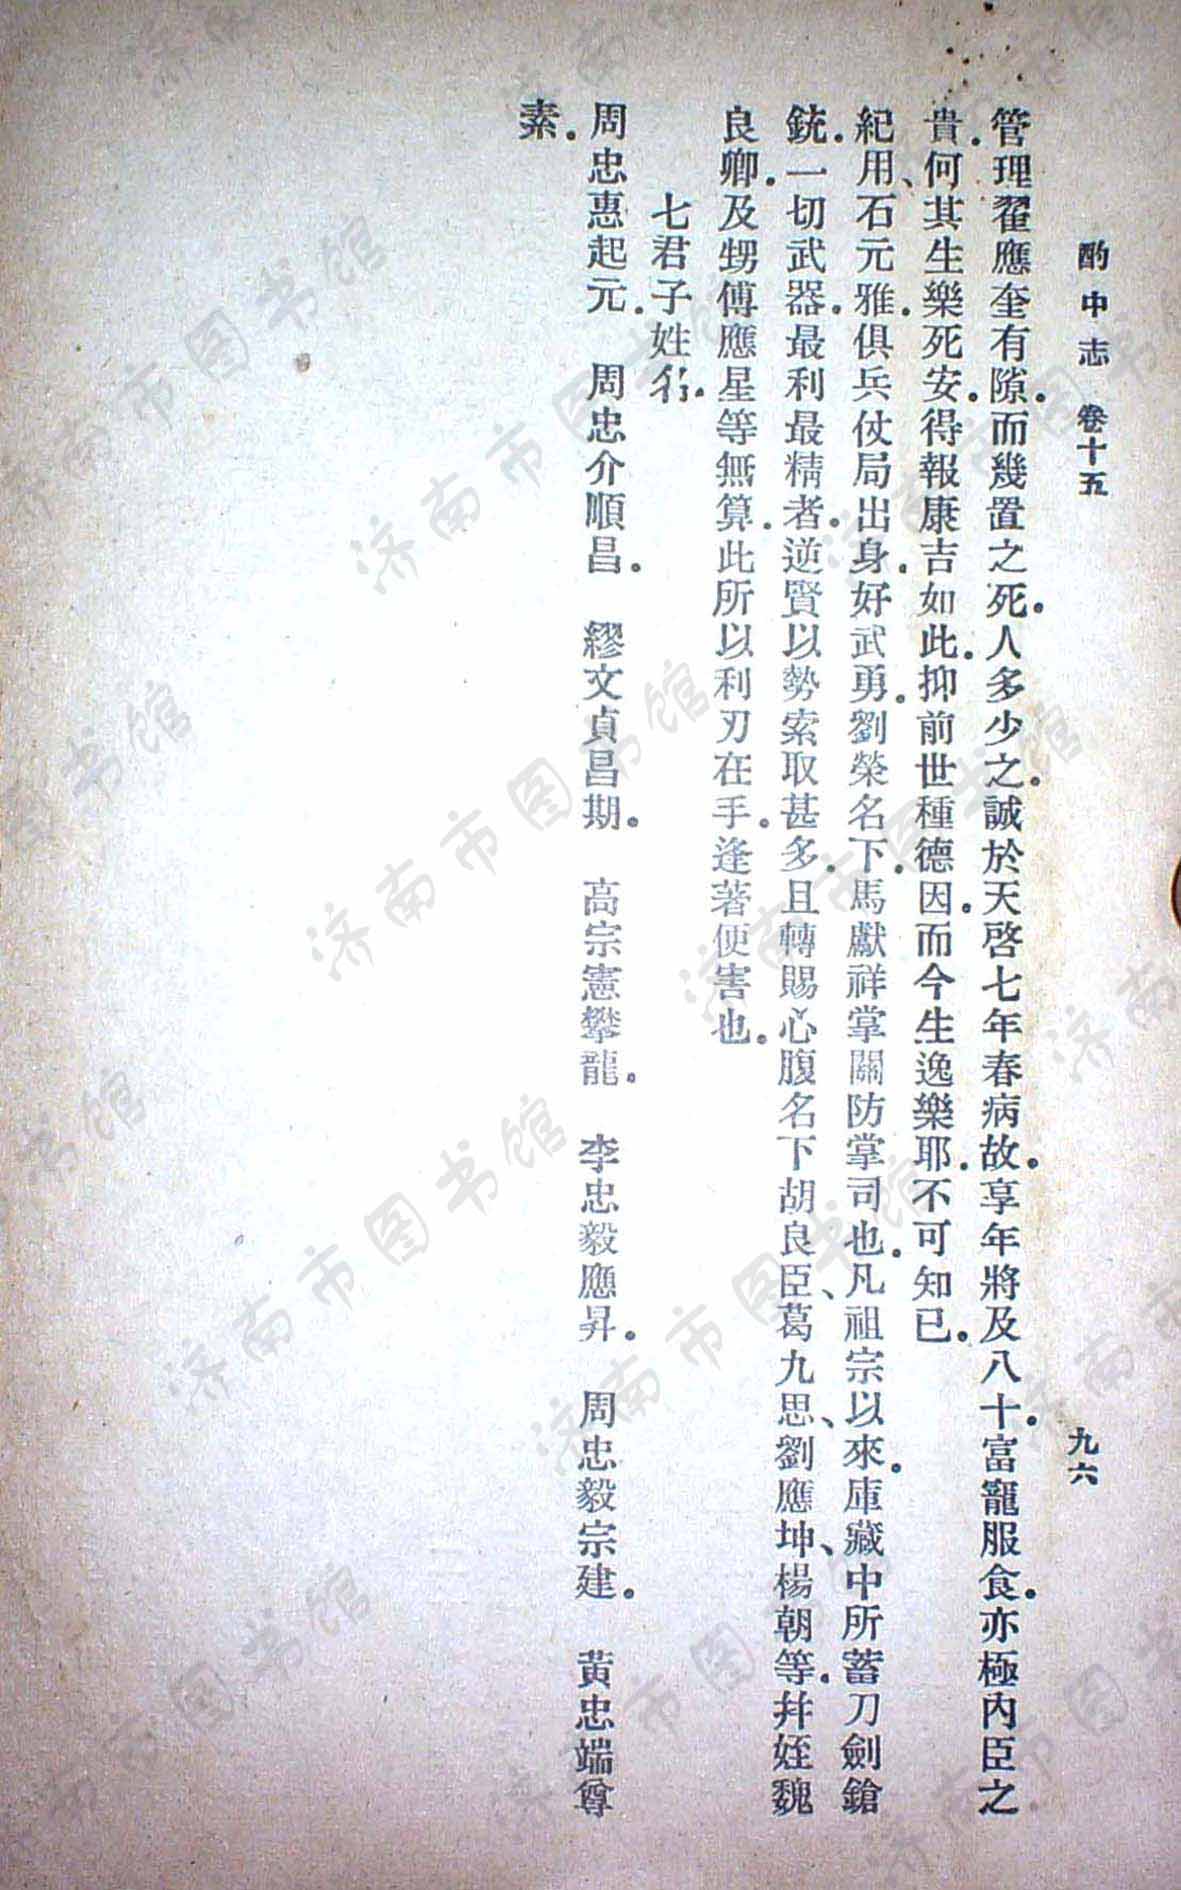 酌中志 卷十五 九六
管理翟應奎有隙。而幾置之死。人多少之。誠於天啓七年春病故。享年將及八十。富寵服食。亦極內臣之
貴。何其生樂死安。得報康吉如此。抑前世種德因。而今生逸樂耶。不可知已。
紀用、石元雅。俱兵仗局出身。好武勇。劉榮名下。馬獻祥掌關防掌司也。凡祖宗以來。庫藏中所蓄刀劍鎗
銃。一切武器。最利最精者。逆賢以勢索取甚多。且轉賜心腹名下胡良臣、葛九思、劉應坤、楊朝等。幷姪魏
良卿。及甥傅應星等無算。此所以利刃在手。逢著便害也。
七君子姓名。
周忠惠起元。 周忠介順昌。 繆文貞昌期。 高宗憲攀龍。 李忠毅應昇。 周忠毅宗建。 黃忠端尊
素。
济南市图书馆